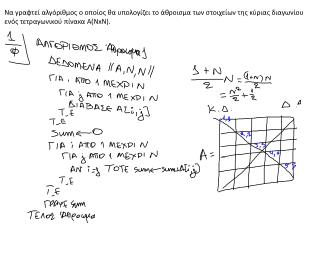 Να γραφτεί αλγόριθμος ο οποίος θα υπολογίζει το άθροισμα των στοιχείων της κύριας διαγωνίου
ενός τετραγωνικού πίνακα A[NxN].
1/Φ
ΑΛΓΟΡΙΘΜΟΣ Άθροισμα1
ΔΕΔΟΜΕΝΑ // A, N, N //
ΓΙΑ i ΑΠΟ 1 ΜΕΧΡΙ N
ΓΙΑ j ΑΠΟ 1 ΜΕΧΡΙ N
ΔΙΑΒΑΣΕ A[i,j]
Τ_Ε
Τ_Ε
Sum ← 0
ΓΙΑ i ΑΠΟ 1 ΜΕΧΡΙ N
ΓΙΑ j ΑΠΟ 1 ΜΕΧΡΙ N
ΑΝ i=j ΤΟΤΕ sum ← sum+A[i,j]
Τ_Ε
Τ_Ε
ΓΡΑΨΕ sum
ΤΕΛΟΣ Άθροισμα
1+N/2 N = (1+N)N/2
K.Δ.
Δ Δ
A =
1,1
2,2
3,3
4,4
5,5